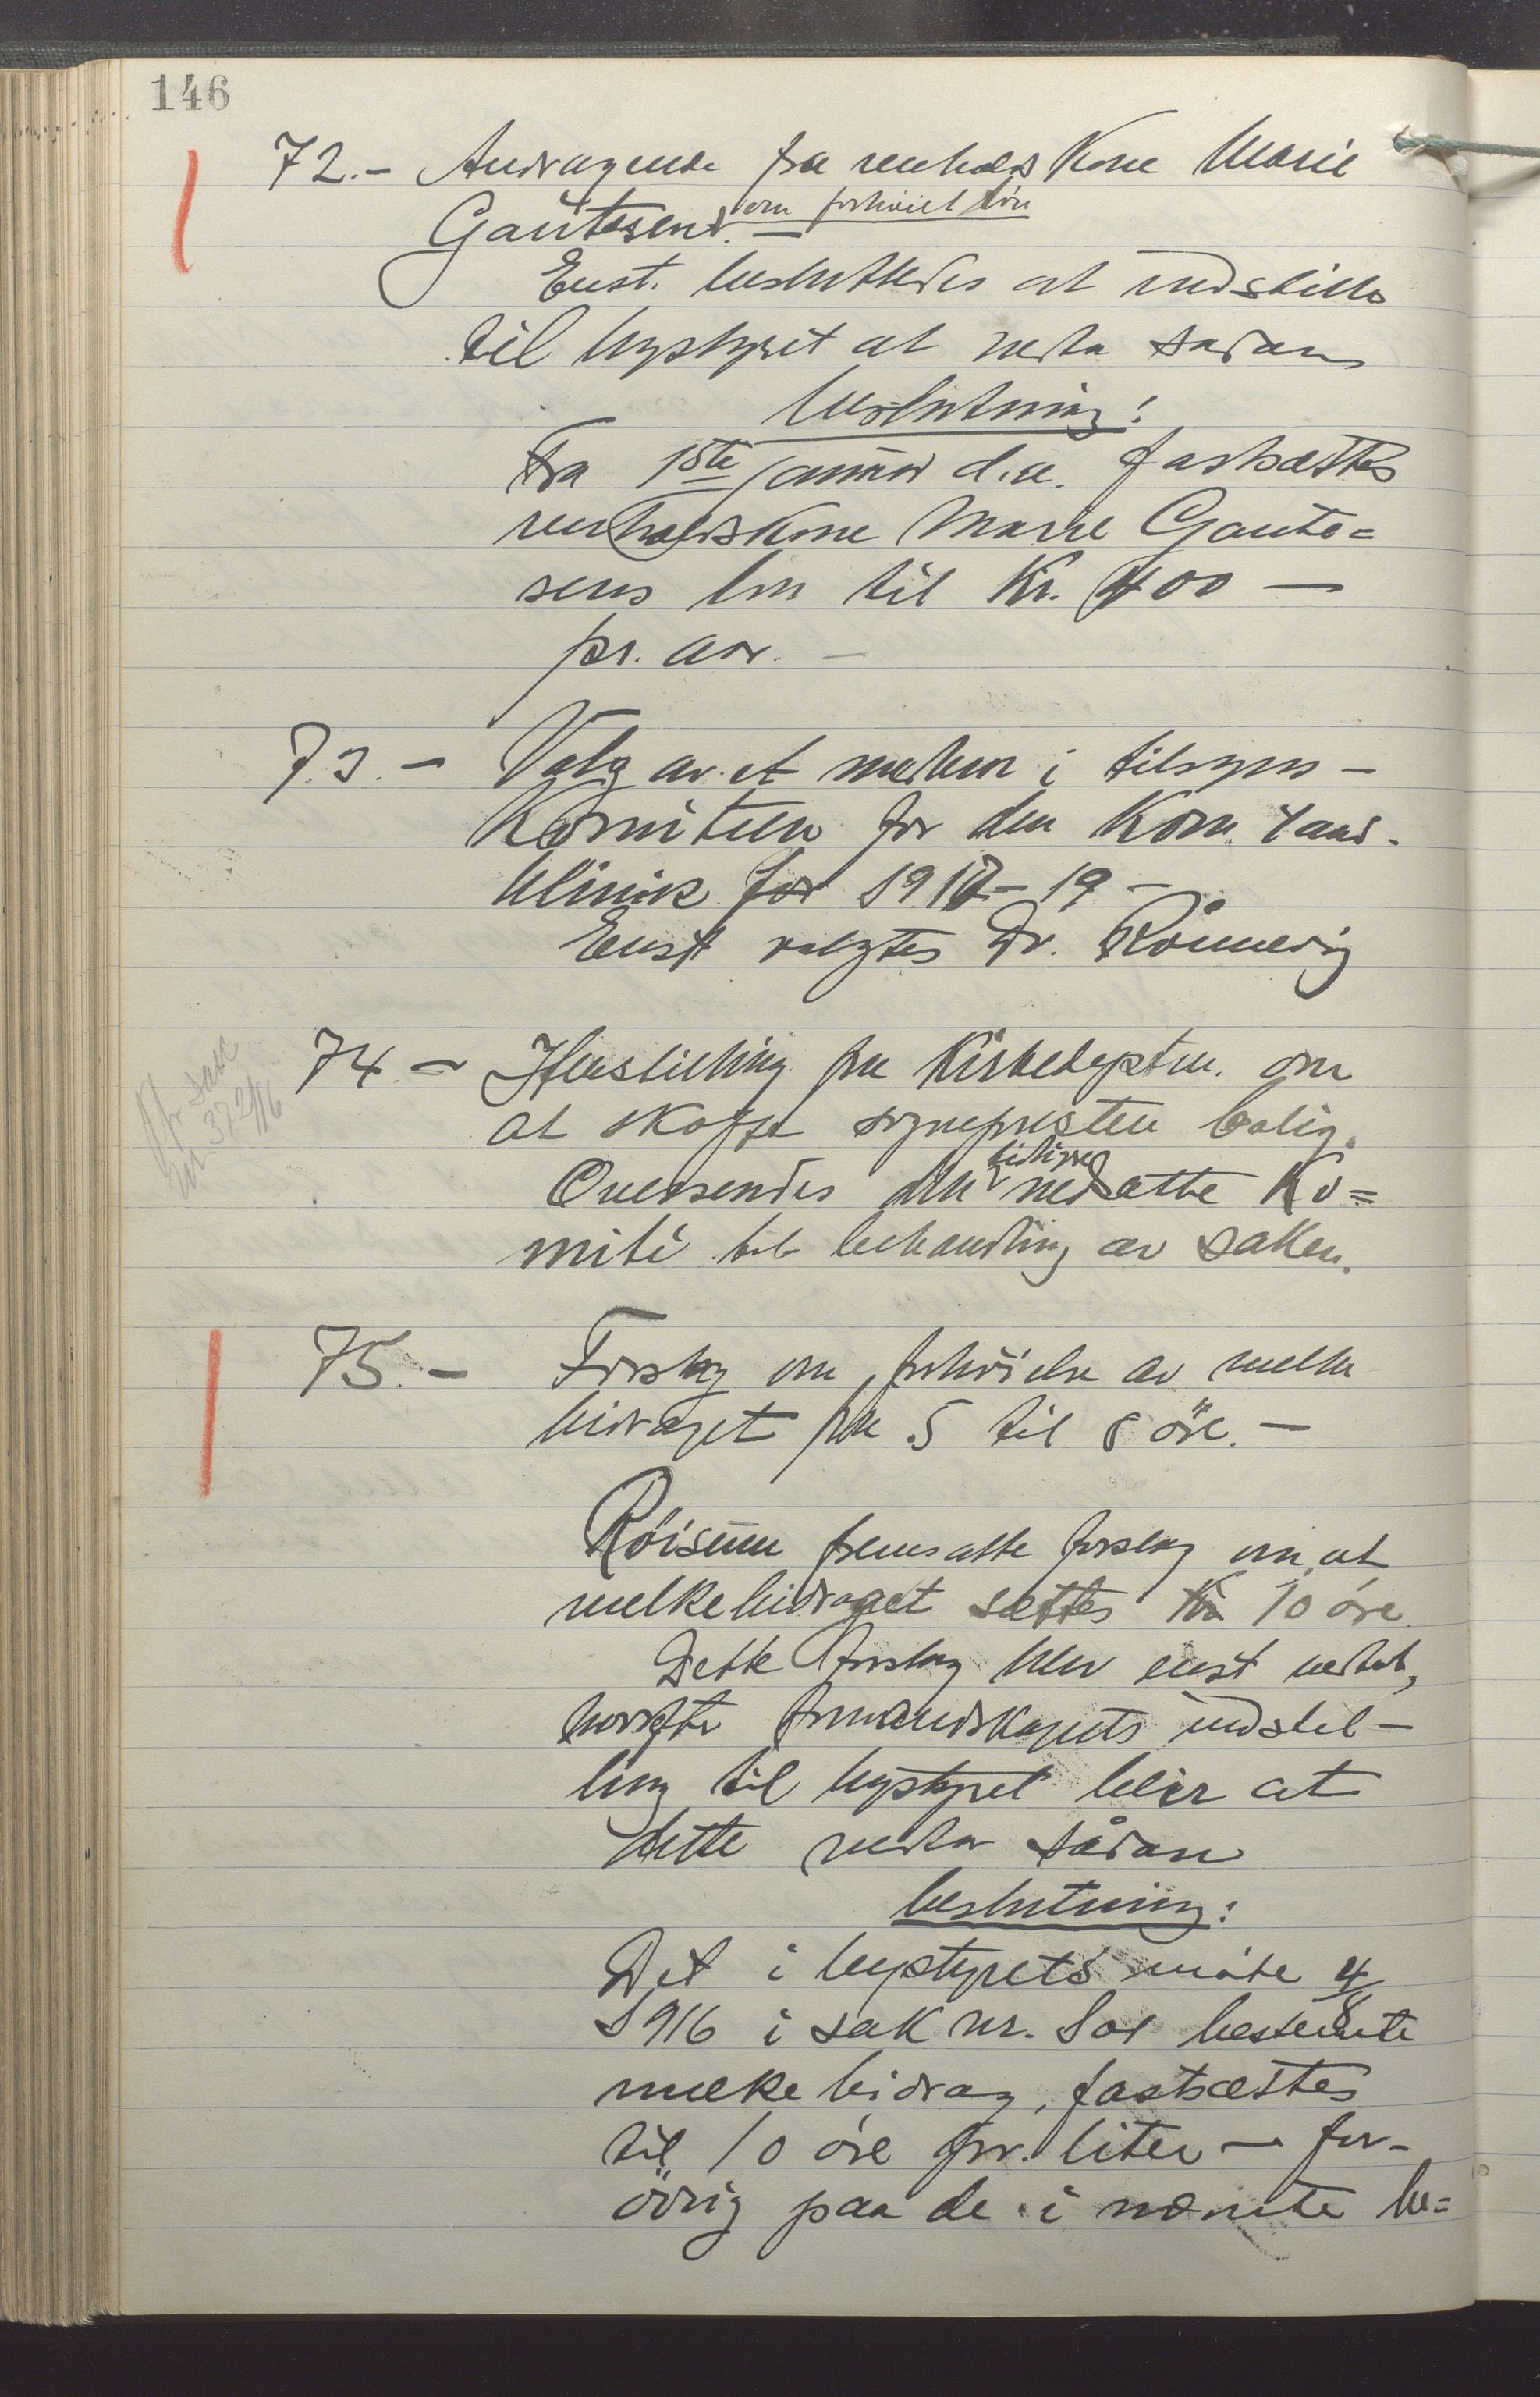 146
72.- Andragende fra renholdskone Marie
Gautesen. om forhøiet løn
Enst. besluttedes at indstille
til bystyret at vedta sadan
beslutning:
Fra 1ste januar d.a. fastsættes
renholdskone Marie Gaute=
sens løn til Kr. 400 —
pr. aar. —
73. - Valg av et medlem i tilsyns-
Komiteen for den Kom. tand-
klinik for 1918-19 -
Enst valgtes Dr. Rönnevig
74. - Henstilling fra Kirkedeptm. om
at skaffe sognepresten bolig.
Oversendes den tidligere nedsatte Ko=
mité til behandling av saken.
Jfr. sak
nr. 372/16
75. - Forslag om forhöielse av melke
bidraget fra 5 til 8 öre. -
Röisum fremsatte forslag om at
melkebidraget sættes til 10 öre
Dette forslag blev enst vedtat,
hvorefter formandskapets indstil-
ling til bystyret blir at
dette vedtar sådan
beslutning:
Det i bystyrets möte 4/8
1916 i sak nr. 801 bestemte
melkebidrag, fastsættes
til 10 öre pr. liter - for-
övrig paa de i nævnte be=